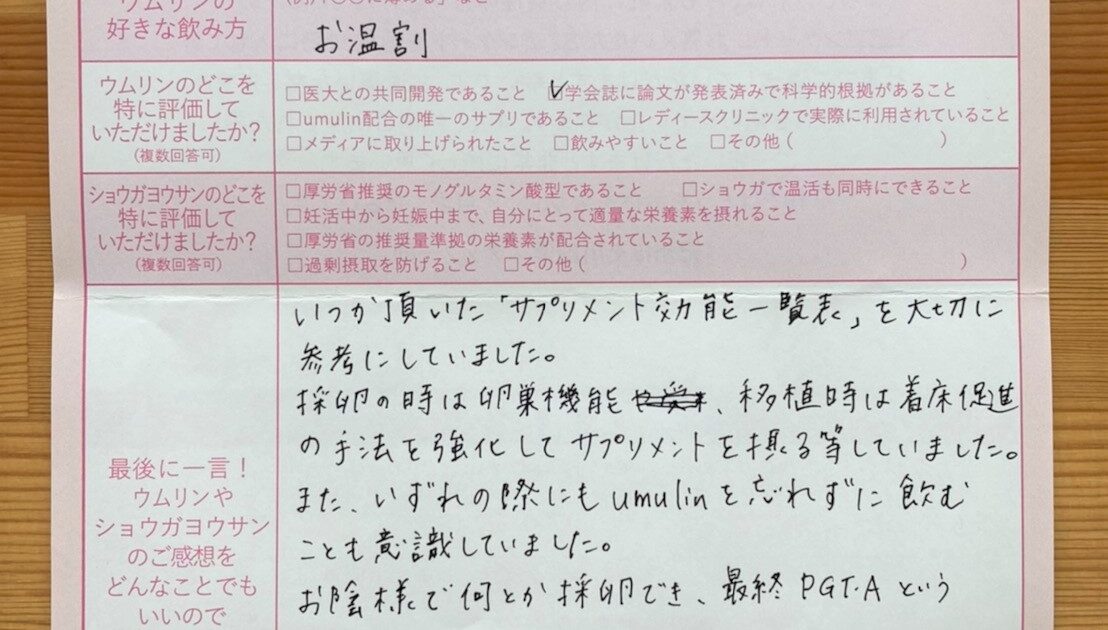 ウムリンの
好きな飲み方
お温割
ウムリンのどこを
特に評価して
いただけましたか?
(複数回答可)
□医大との共同開発であること ☑学会誌に論文が発表済みで科学的根拠があること
□umulin配合の唯一のサプリであること □レディースクリニックで実際に利用されていること
□メディアに取り上げられたこと □飲みやすいこと □その他 ( )
ショウガヨウサンのどこを
特に評価して
いただけましたか?
(複数回答可)
□厚労省推奨のモノグルタミン酸型であること □ショウガで温活も同時にできること
□妊活中から妊娠中まで、自分にとって適量な栄養素を摂れること
□厚労省の推奨量準拠の栄養素が配合されていること
□過剰摂取を防げること □その他 ( )
最後に一言!
ウムリンや
ショウガヨウサン
のご感想を
どんなことでも
いいので
いつか頂いた「サプリメント効能一覧表」を大切に
参考にしていました。
採卵の時は卵巣機能、移植時は着床促進
の手法を強化してサプリメントを摂る等していました。
また、いずれの際にもumulinを忘れずに飲む
ことも意識していました。
お陰様で何とか採卵でき、最終PGT-Aという